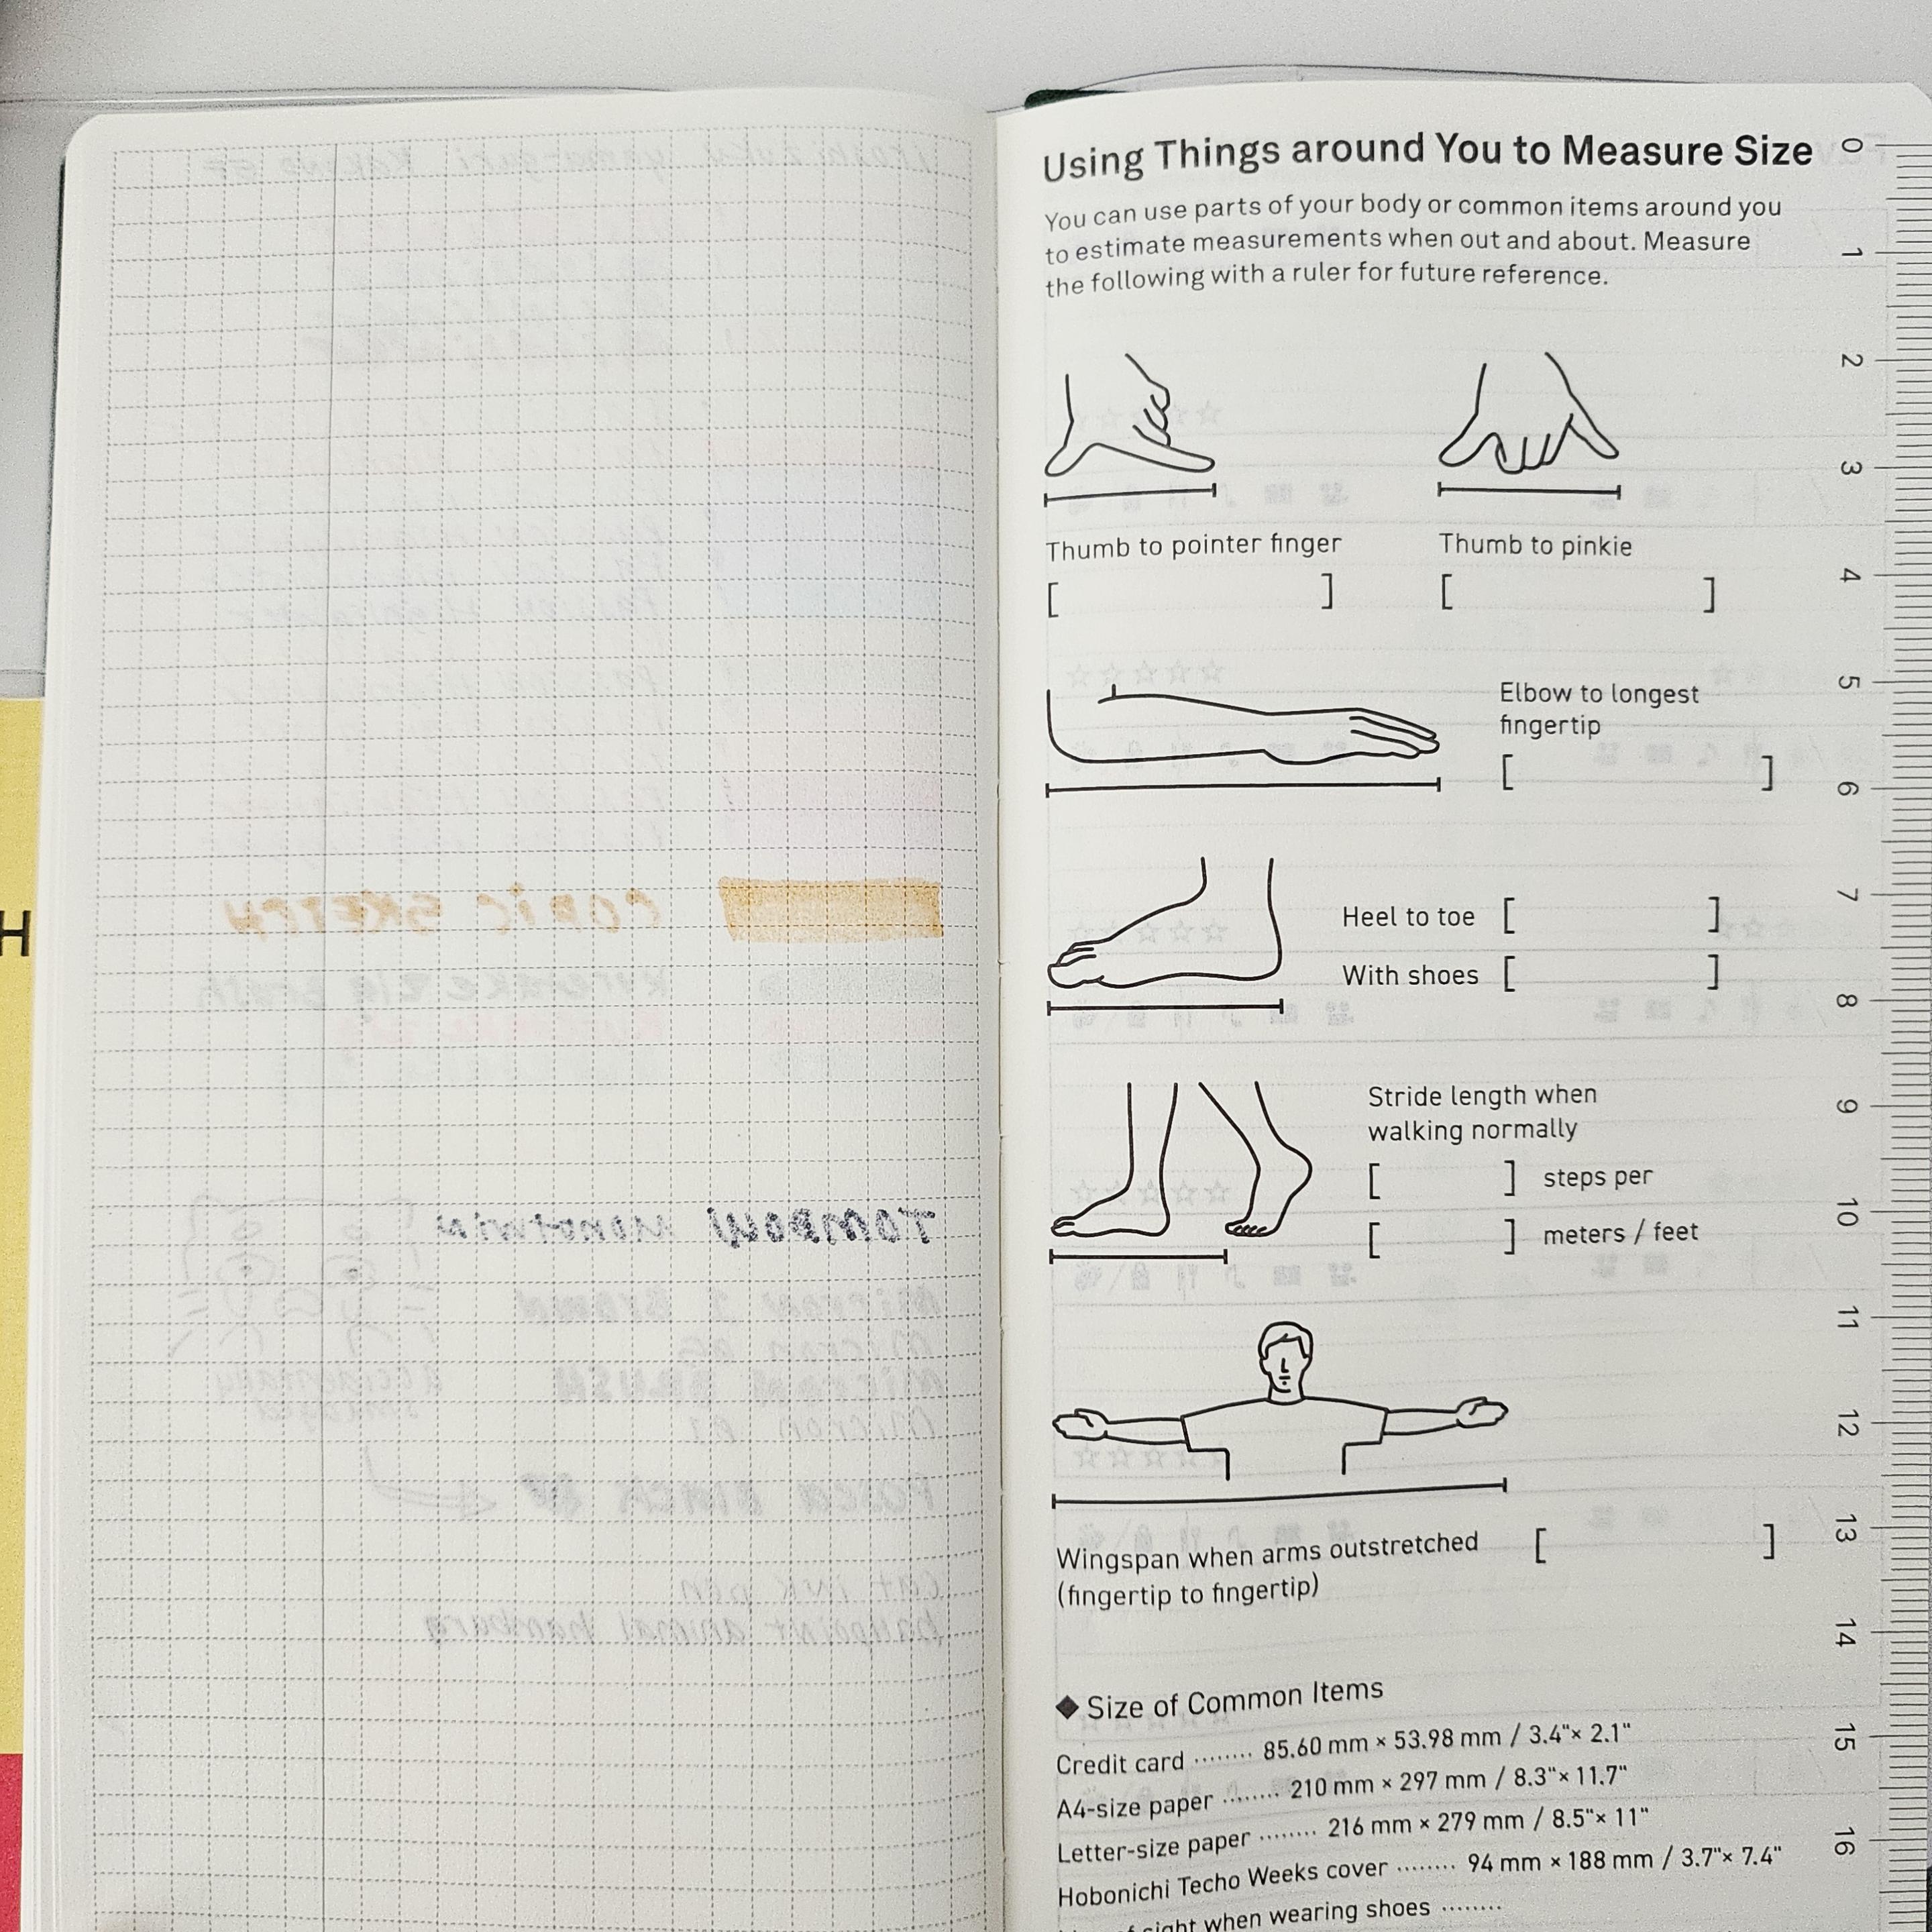 COPIC SKETCH
TOMBOW MONOTWIN
MICRON 1 BROWN
MICRON 05
MICRON BRUSH
MICRON 01
POSCA BLACK
accidentally
smudged
cat ink pen
H
Using Things around You to Measure Size
You can use parts of your body or common items around you
to estimate measurements when out and about. Measure
the following with a ruler for future reference.
Thumb to pointer finger
[ ]
Thumb to pinkie
[ ]
Elbow to longest
fingertip
[ ]
Heel to toe [ ]
With shoes [ ]
Stride length when
walking normally
[ ] steps per
[ ] meters / feet
Wingspan when arms outstretched [ ]
(fingertip to fingertip)
◆ Size of Common Items
Credit card ········ 85.60 mm × 53.98 mm / 3.4"× 2.1"
A4-size paper ········ 210 mm × 297 mm / 8.3"× 11.7"
Letter-size paper ········ 216 mm × 279 mm / 8.5"× 11"
Hobonichi Techo Weeks cover ········ 94 mm × 188 mm / 3.7"× 7.4"
sight when wearing shoes ········
0
1
2
3
4
5
6
7
8
9
10
11
12
13
14
15
16